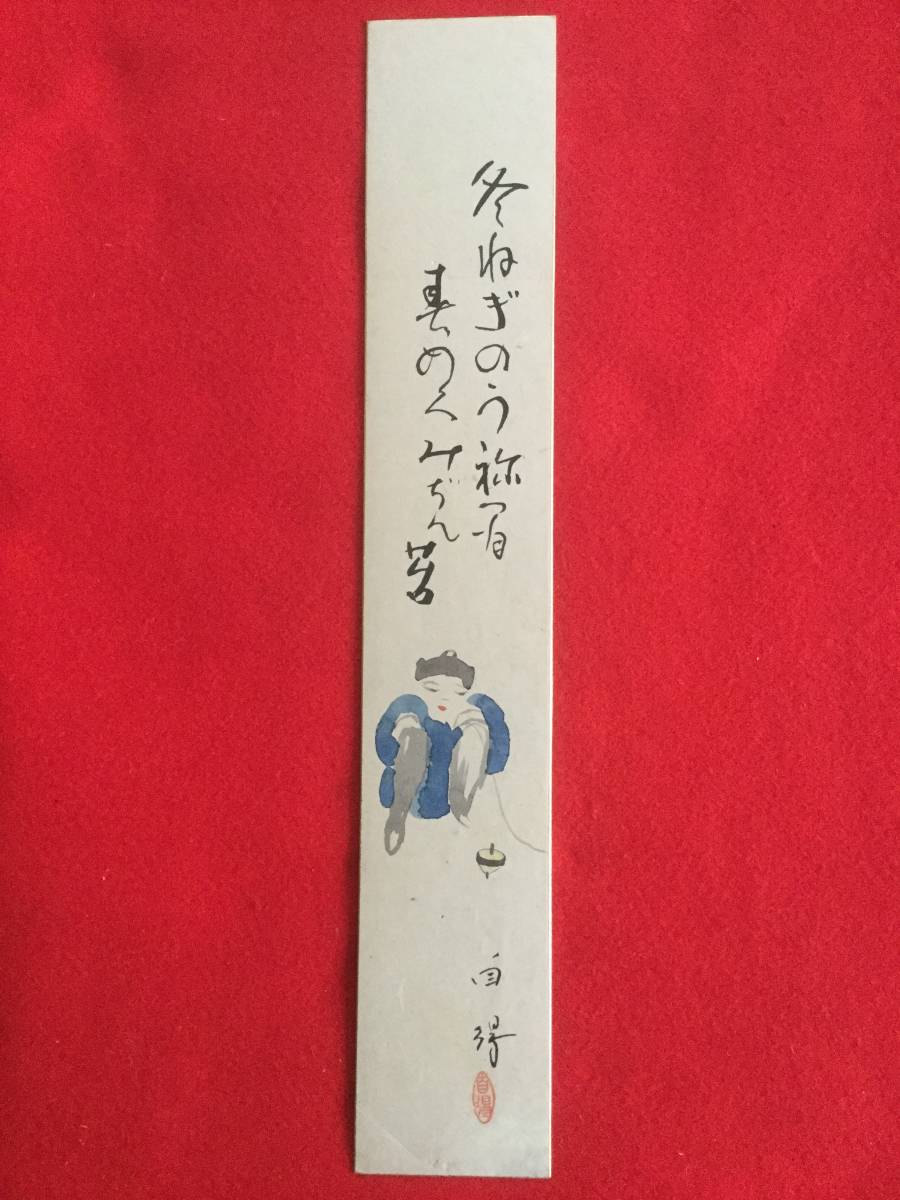 冬ねぎのう祢間
春めくみぢん
自得
自得